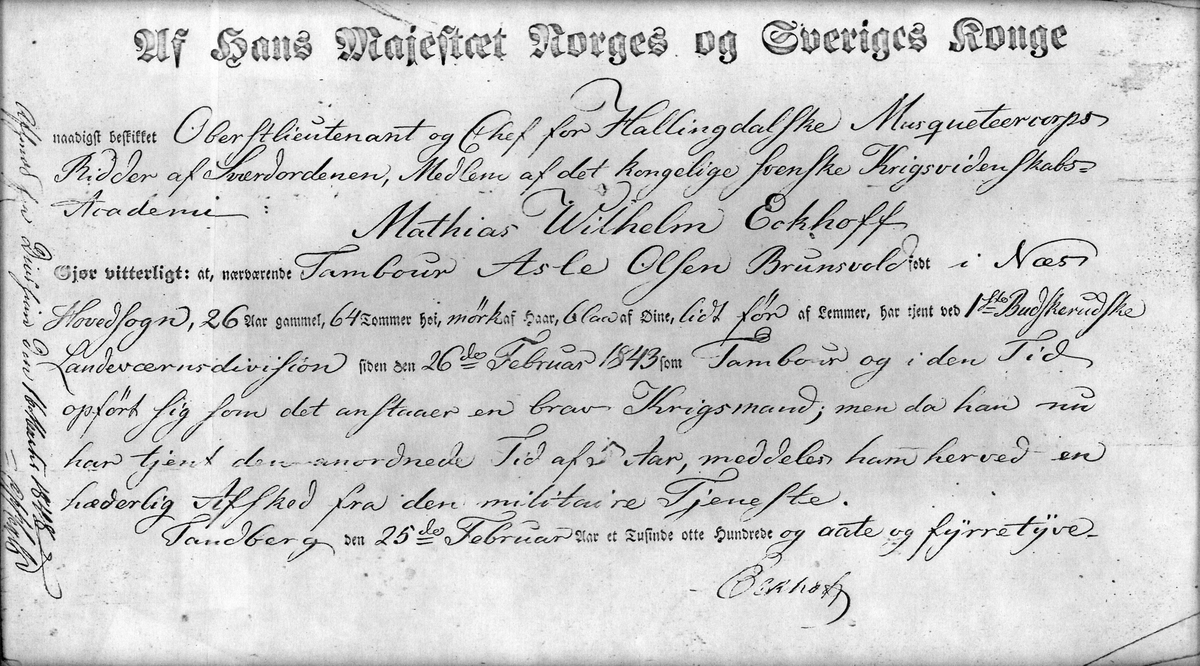 Af Hans Majestæt Norges og Sveriges Konge
naadigst beskikket Oberstlieutenant og Chef for Hallingdalske Musqueteercorps
Ridder af Sværdordenen, Medlem af det kongelige svenske Krigsvidenskabs=
Academi :
Mathias Wilhelm Eckhoff
Gjør vitterligt: at, nærværende Tambour Asle Olsen Brunsvold født i Næs
Hovedsogn, 26 Aar gammel, 64 Tommer høi, mörk af Haar, blaa af Øine, lidt før af Lemmer, har tjent ved 1ste Budskerudske
Landeværnsdivision siden den 26de Februar 1843 som Tambour og i den Tid
opført sig som det anstaaer en brav Krigsmand; men da han nu
har tjent den anordnede Tid af 5 Aar, meddeles ham herved en
hæderlig Afsked fra den militaire Tjeneste.
Sandberg den 25de Februar Aar et Tusinde otte Hundrede og aatte og fyrretyve-
Eckhoff
1848